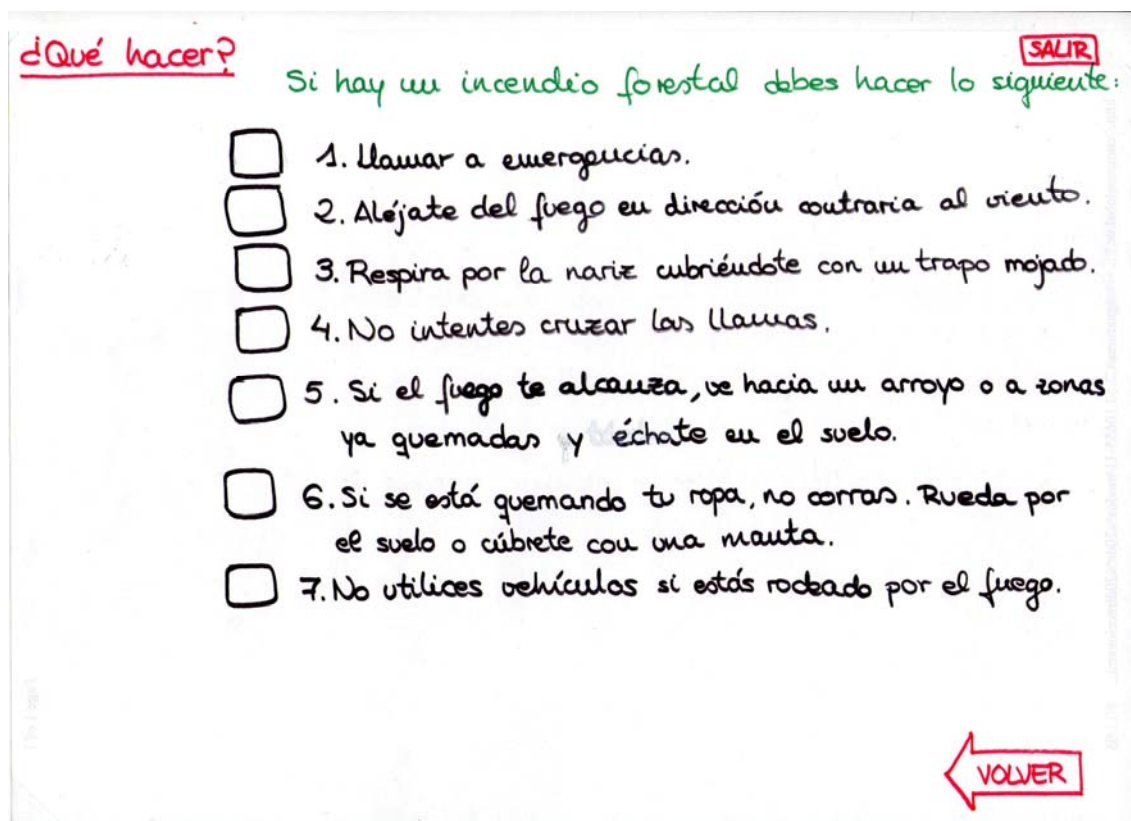 ¿Qué hacer?
SALIR
Si hay un incendio forestal debes hacer lo siguiente:
1. Llamar a emergencias.
2. Aléjate del fuego en dirección contraria al viento.
3. Respira por la nariz cubriéndote con un trapo mojado.
4. No intentes cruzar las llamas.
5. Si el fuego te alcanza, ve hacia un arroyo o a zonas
ya quemadas y échate en el suelo.
6. Si se está quemando tu ropa, no corras. Rueda por
el suelo o cúbrete con una manta.
7. No utilices vehículos si estás rodeado por el fuego.
VOLVER